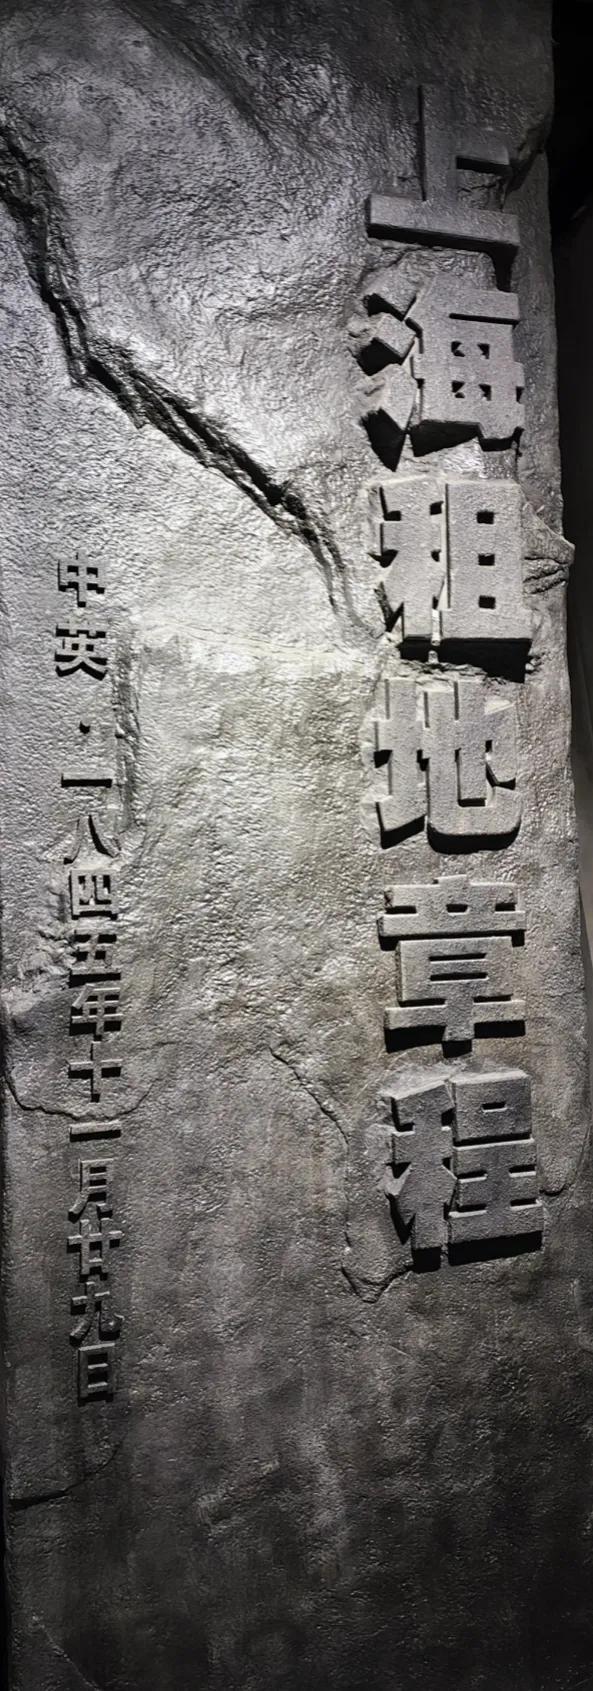 上海租地章程
中英·一八四五年十一月廿九日